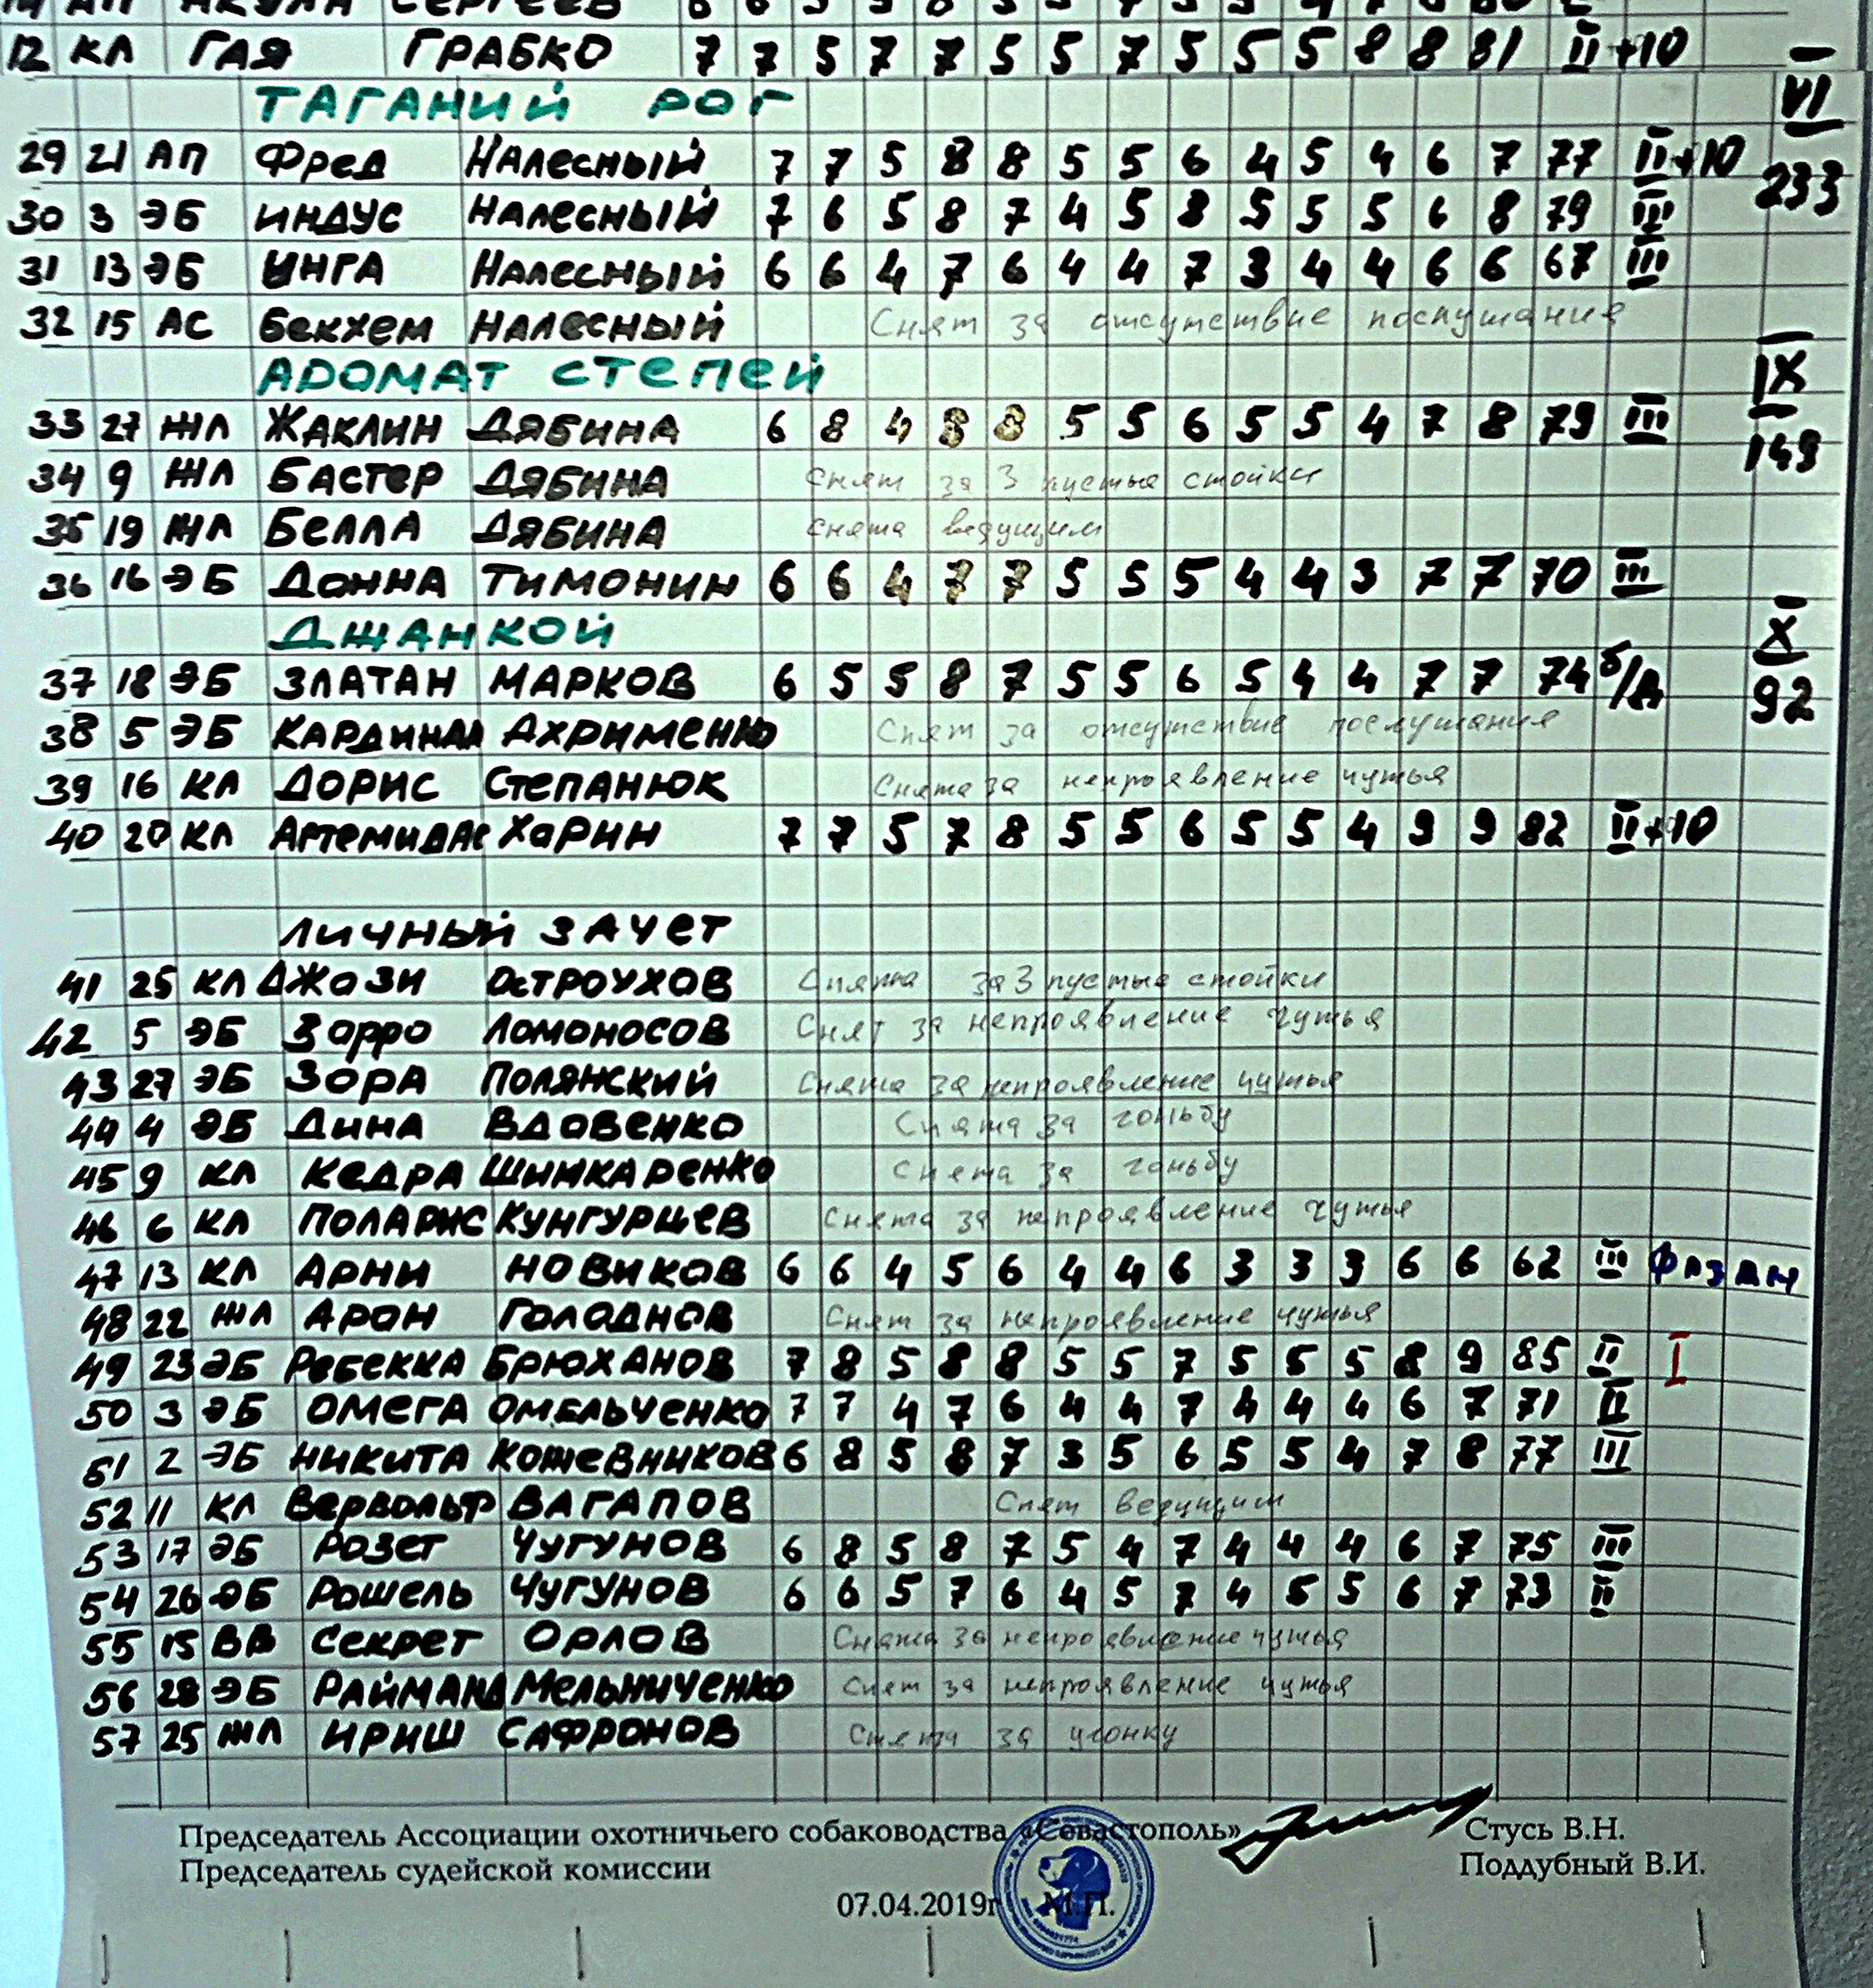 12 КЛ ГАЯ ГРАБКО 7 7 5 7 7 5 5 7 5 5 5 8 8 81 II +10 —
ТАГАНИЙ РОГ VI
29 21 АП Фред Налесный 7 7 5 8 8 5 5 6 4 5 4 6 7 77 II +10 233
30 3 ЭБ ИНДУС Налесный 7 6 5 8 7 4 5 8 5 5 5 6 8 79 III
31 13 ЭБ ИНГА Налесный 6 6 4 7 6 4 4 7 3 4 4 6 6 67 III
32 15 АС Бекхем Налесный Снят за отсутствие послушания
АРОМАТ СТЕПЕЙ IX
33 27 ЖЛ ЖАКЛИН ДЯБИНА 6 8 4 8 8 5 5 6 5 5 4 7 8 79 III 149
34 9 ЖЛ БАСТЕР ДЯБИНА Снят за 3 пустые стойки
35 19 ЖЛ БЕЛЛА ДЯБИНА Снята ведущим
36 16 ЭБ ДОННА ТИМОНИН 6 6 4 7 7 5 5 5 4 4 3 7 7 70 III
ДЖАНКОЙ X
37 18 ЭБ ЗЛАТАН МАРКОВ 6 5 5 8 7 5 5 6 5 4 4 7 7 74 б/д 92
38 5 ЭБ КАРДИНАЛ АХРИМЕНКО Снят за отсутствие послушания
39 16 КЛ ДОРИС СТЕПАНЮК Снята за непроявление чутья
40 20 КЛ Артемида Харин 7 7 5 7 8 5 5 6 5 5 4 9 9 82 II +10
ЛИЧНЫЙ ЗАЧЕТ
41 25 КЛ Джази Остроухов Снята за 3 пустые стойки
42 5 ЭБ Зорро Ломоносов Снят за непроявление чутья
43 27 ЭБ Зора Полянский Снята за непроявление чутья
44 4 ЭБ Дина Вдовенко Снята за гоньбу
45 9 КЛ Кедра Шинкаренко Снята за гоньбу
46 6 КЛ Поларис Кунгурцев Снята за непроявление чутья
47 13 КЛ АРНИ НОВИКОВ 6 6 4 5 6 4 4 6 3 3 3 6 6 62 III фазан
48 22 ЖЛ АРОН ГОЛОДНОВ Снят за непроявление чутья
49 23 ЭБ Ребекка БРЮХАНОВ 7 8 5 8 8 5 5 7 5 5 5 8 9 85 II I
50 3 ЭБ ОМЕГА ОМЕЛЬЧЕНКО 7 7 4 7 6 4 4 7 4 4 4 6 7 71 II
51 2 ЭБ НИКИТА КОЖЕВНИКОВ 6 8 5 8 7 3 5 6 5 5 4 7 8 77 III
52 11 КЛ Вервольф ВАГАПОВ Снят ведущим
53 17 ЭБ Розет ЧУГУНОВ 6 8 5 8 7 5 4 7 4 4 4 6 7 75 III
54 26 ЭБ Рошель ЧУГУНОВ 6 6 5 7 6 4 5 7 4 5 5 6 7 73 II
55 15 ВВ Секрет ОРЛОВ Снята за непроявление чутья
56 28 ЭБ РАЙМАНД Мельниченко Снят за непроявление чутья
57 25 ЖЛ ИРИШ САФРОНОВ Снята за угонку
Председатель Ассоциации охотничьего собаководства «Севастополь» Стусь В.Н.
Председатель судейской комиссии Поддубный В.И.
07.04.2019г М.П.